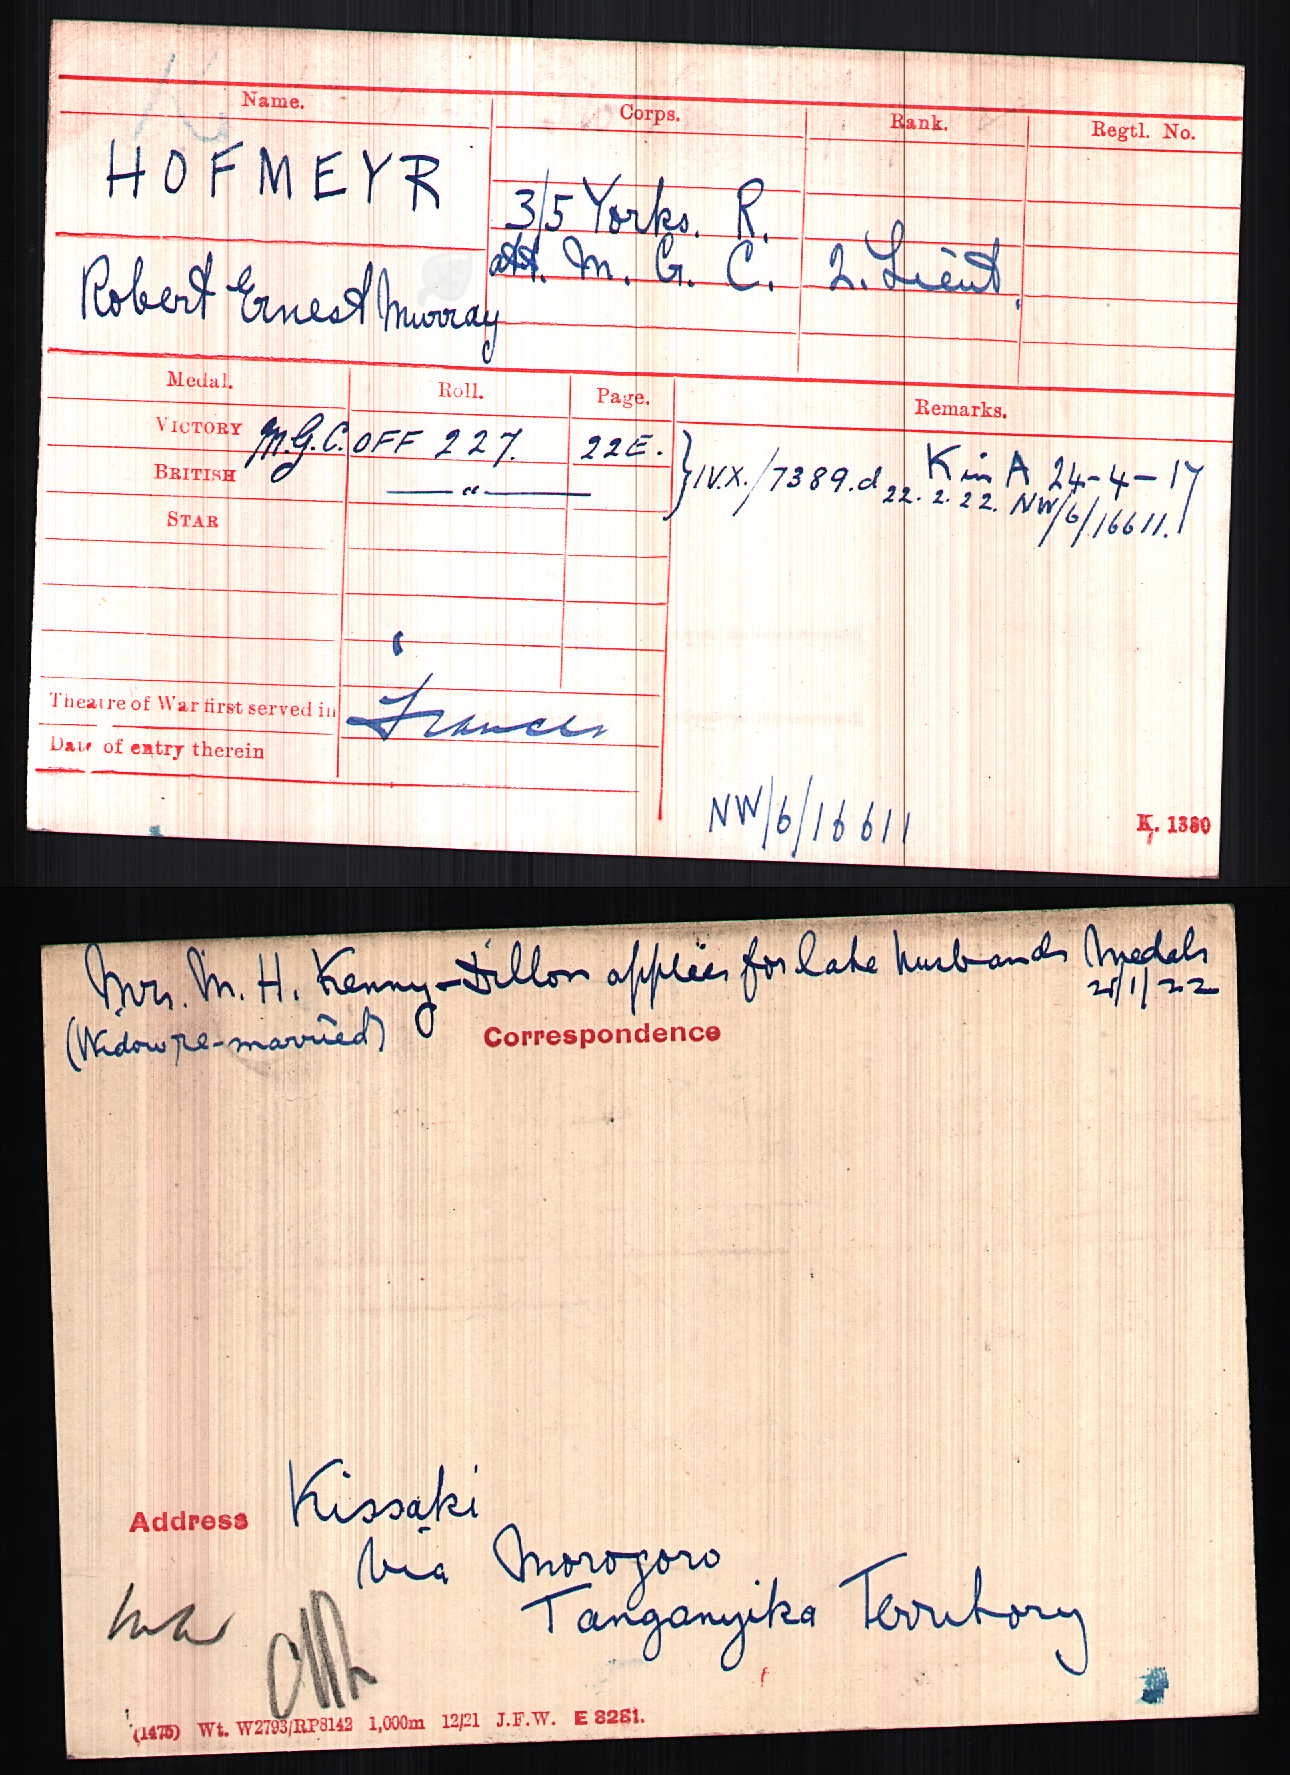 Name. Corps. Rank. Regtl. No.
HOFMEYR
3/5 Yorks. R.
att. M. G. C. 2. Lieut.
Robert Ernest Murray
Medal. Roll. Page. Remarks.
VICTORY M.G.C. OFF 227. 22E. } IV.X./7389.d K in A 24-4-17
BRITISH —— " —— 22. 2. 22. NW/6/16611.
STAR
Theatre of War first served in France
Date of entry therein
NW/6/16611
K. 1380
Mrs. M. H. Kenny-Dillon applies for late husbands Medals
/1/22
(Widow re-married)
Correspondence
Address Kissaki
via Morogoro
Tanganyika Territory
(1475) Wt. W2793/RP8142 1,000m 12/21 J.F.W. E 8281.